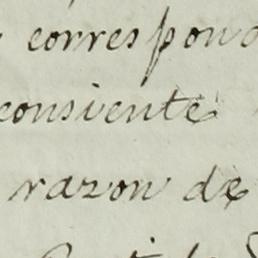 correspond
consiente
razon de